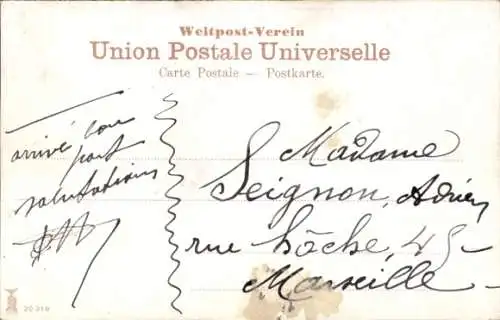 Weltpost-Verein
Union Postale Universelle
Carte Postale — Postkarte.
arrivé bon
port
salutations
Madame
Seignon, Adrien
rue Loche, 45
Marseille